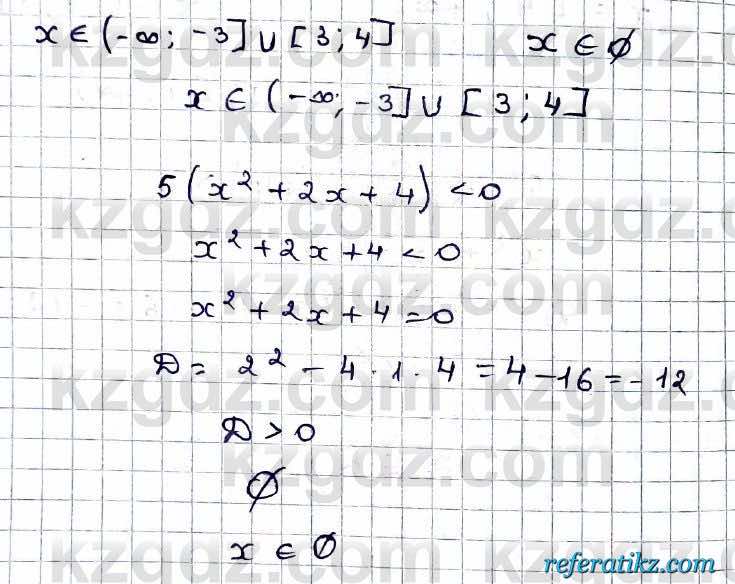 x ∈ (-∞; -3] ∪ [3; 4]    x ∈ ∅
x ∈ (-∞; -3] ∪ [3; 4]
5(x² + 2x + 4) < 0
x² + 2x + 4 < 0
x² + 2x + 4 = 0
D = 2² - 4 · 1 · 4 = 4 - 16 = -12
D > 0
∅
x ∈ ∅
kzgdz.com
referatikz.com